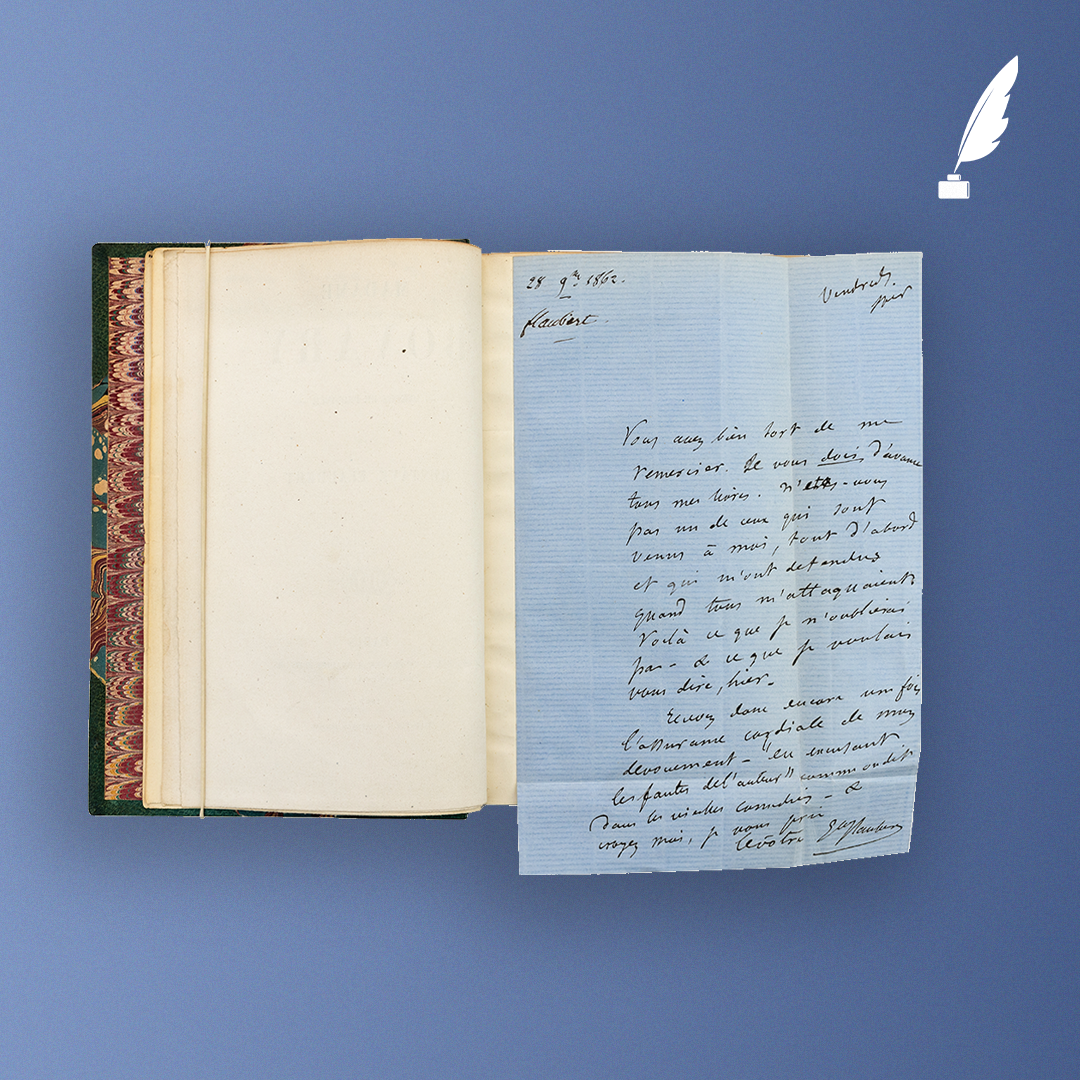 28 9bre 1862.
Vendredi
soir
flaubert
Vous avez bien tort de me
remercier. Je vous dois, d'avance
tous mes livres. N'êtes-vous
pas un de ceux qui sont
venus à moi, tout d'abord
et qui m'ont défendu
quand tous m'attaquaient
Voilà ce que je n'oublierai
pas - & ce que je voulais
vous dire, hier.
Recevez donc encore une fois
l'assurance cordiale de mon
dévouement - "en excusant
les fautes de l'auteur" comme on dit
dans les vieilles comédies - &
croyez moi, je vous prie
le vôtre Gve flaubert